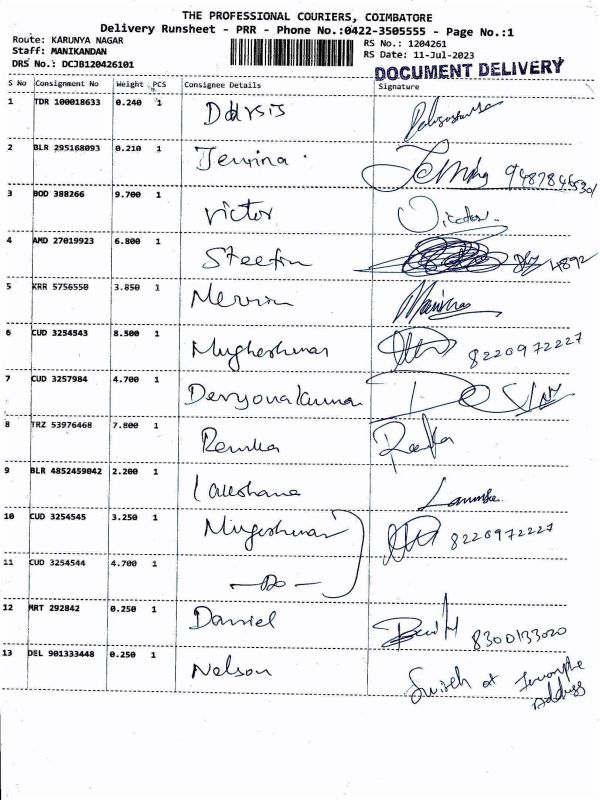 THE PROFESSIONAL COURIERS, COIMBATORE
Delivery Runsheet - PRR - Phone No.:0422-3505555 - Page No.:1
Route: KARUNYA NAGAR
Staff: MANIKANDAN
DRS No.: DCJB120426101
RS No.: 1204261
RS Date: 11-Jul-2023
DOCUMENT DELIVERY
S No Consignment No Weight PCS Consignee Details Signature
1 TDR 100018633 0.240 1
2 BLR 295168093 0.210 1 Jemina
3 BOD 388266 9.700 1 Victor Victor
4 AMD 27019923 6.800 1 Steefin 4892
5 KRR 5756550 3.850 1 Merrin
6 CUD 3254543 8.500 1 Mugheshwar 8220972227
7 CUD 3257984 4.700 1
8 TRZ 53976468 7.800 1
9 BLR 4852459042 2.200 1
10 CUD 3254545 3.250 1 Mugeshwar 8220972227
11 CUD 3254544 4.700 1 —do—
12 MRT 292842 0.250 1 Daniel 8300133020
13 DEL 901333448 0.250 1 Nelson
Address